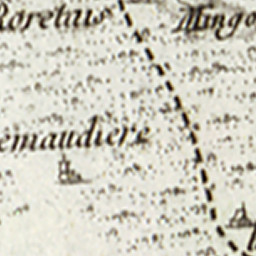 Roretais
Mingo
emaudiere